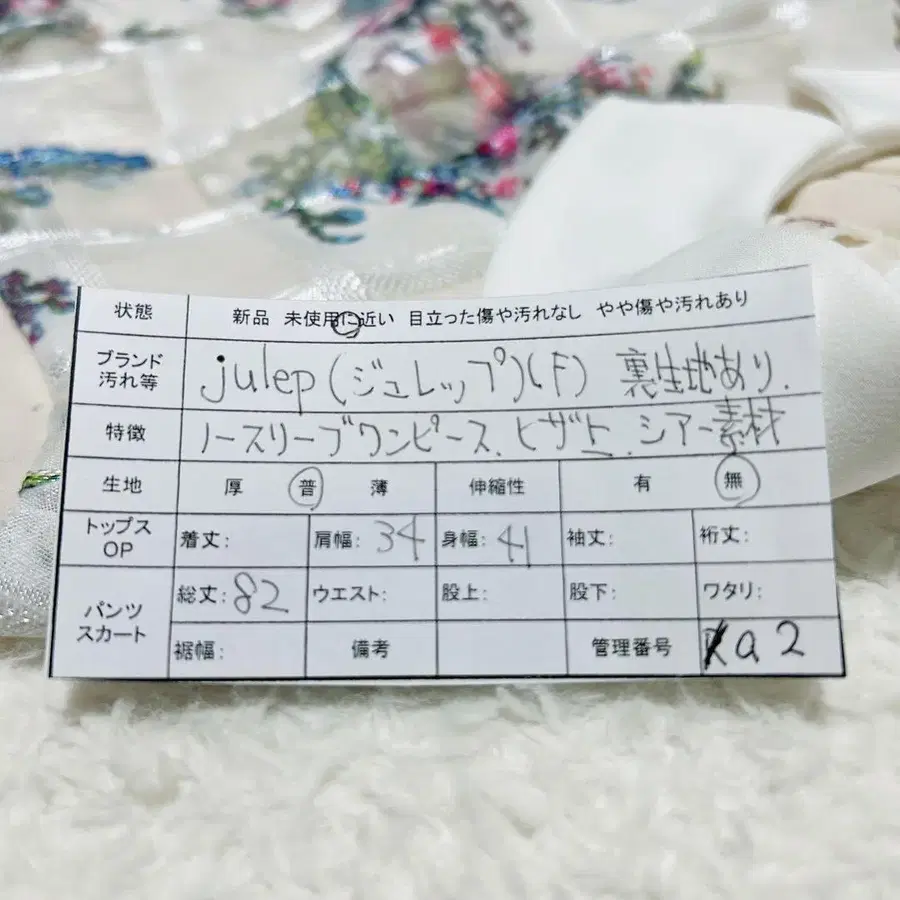 状態 新品 未使用に近い 目立った傷や汚れなし やや傷や汚れあり
ブランド
汚れ等
julep (ジュレップ)(F) 裏生地あり.
特徴 ノースリーブワンピース、ヒザ上、シアー素材
生地 厚 普 薄 伸縮性 有 無
トップス
OP
着丈: 肩幅: 34 身幅: 41 袖丈: 裄丈:
パンツ
スカート
総丈: 82 ウエスト: 股上: 股下: ワタリ:
裾幅: 備考 管理番号 Ka2